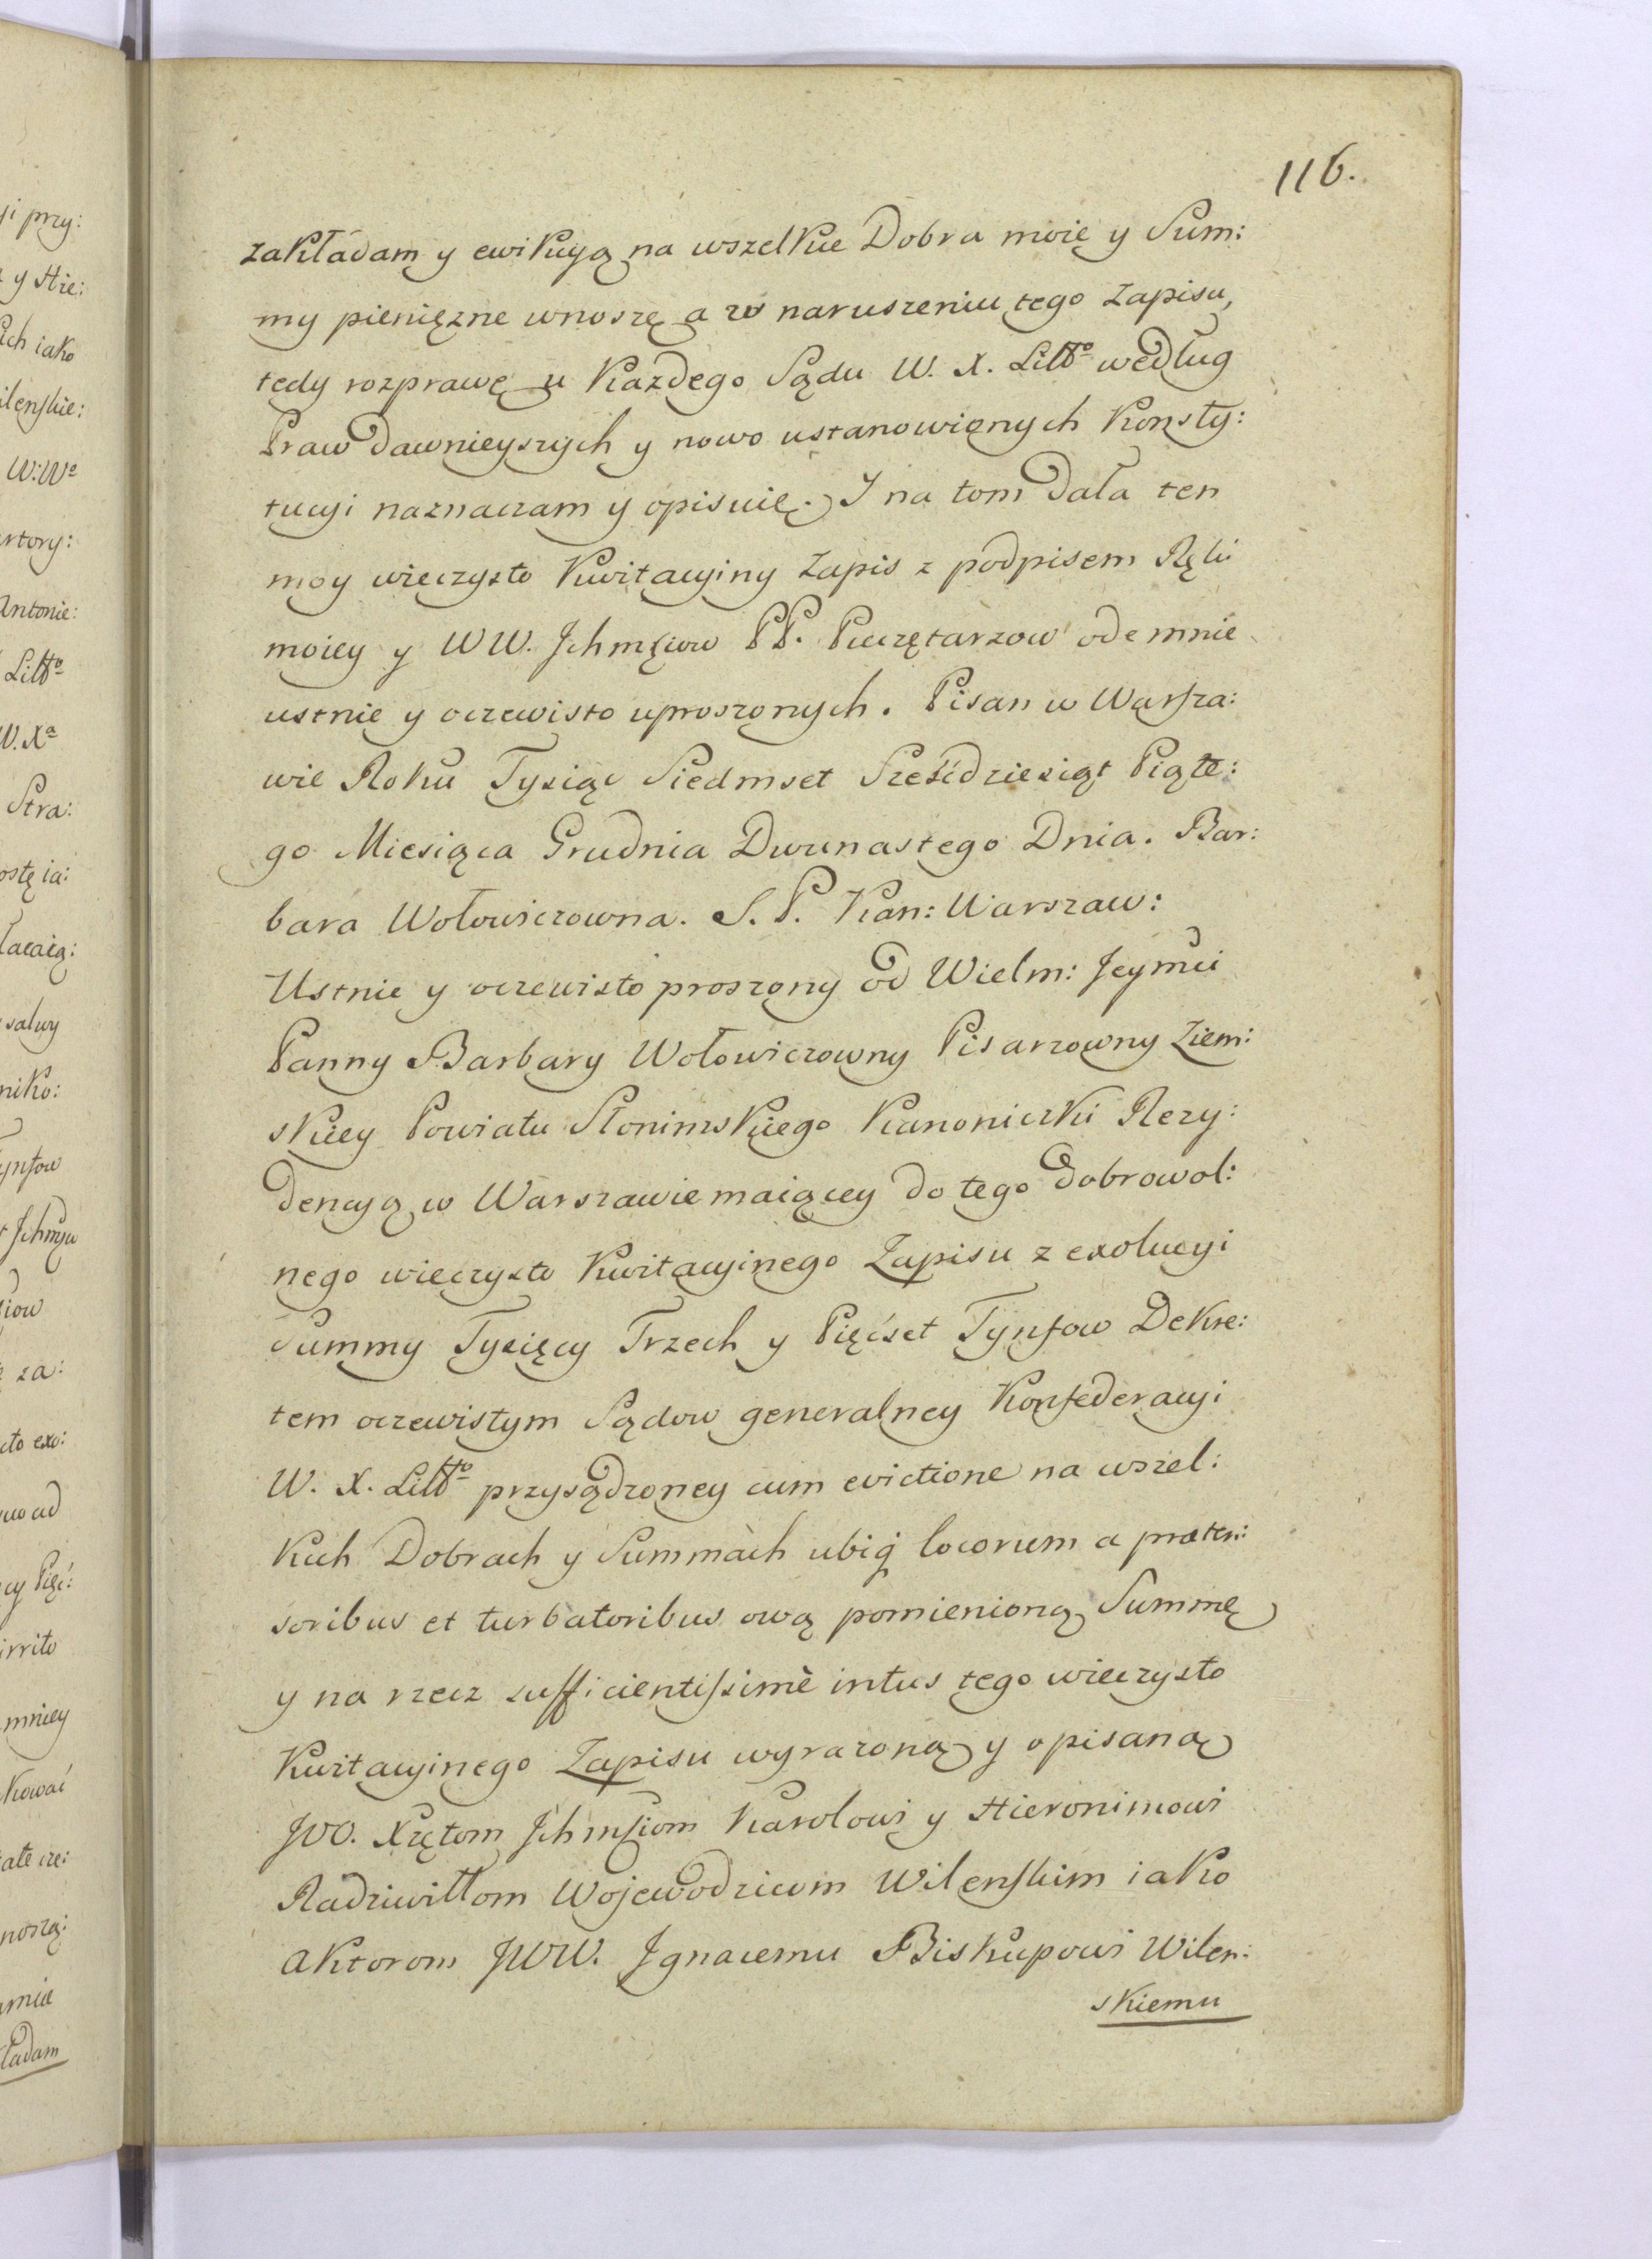 116.
zakładam y ewikcyą na wszelkie Dobra moię y Sum:
my pieniężne wnoszę a w naruszeniu tego Zapisu,
tedy rozprawę u każdego Sądu W. X. Litt° według
Praw dawnieyszych y nowo ustanowionych Konsty:
tucyi naznaczam y opisuię. I na tom dała ten
moy wieczysto Kwitacyiny Zapis z podpisem Ręki
moiey y WW. Ichmściow PP. Pieczętarzow odemnie
ustnie y oczewisto uproszonych. Pisan w Warsza:
wie Roku Tysiąc Siedmset Sześćdziesiąt Piąte:
go Miesiąca Grudnia Dwunastego Dnia. Bar:
bara Wołowiczowna. S. P. Kan: Warszaw:
Ustnie y oczewisto proszony od Wielm: Jeymci
Panny Barbary Wołowiczowny Pisarzowny Ziem:
skiey Powiatu Słonimskiego Kanoniczki Rezy:
dencyą w Warszawie maiącey do tego dobrowol:
nego wieczysto Kwitacyinego Zapisu z exolucyi
Summy Tysięcy Trzech y Pięćset Tynfow Dekre:
tem oczewistym Sądow generalney Konfederacyi
W. X. Litt° przysądzoney cum evictione na wszel:
kich Dobrach y Summach ubiq locorum a præten:
soribus et turbatoribus ową pomienioną Summę
y na rzecz sufficientissimè intus tego wieczysto
Kwitacyinego Zapisu wyrażoną y opisaną
JOO. Xżętom Ichmściom Karolowi y Hieronimowi
Radziwiłłom Wojewodzicom Wilenskim iako
aktorom JWW. Ignacemu Biskupowi Wilen:
skiemu